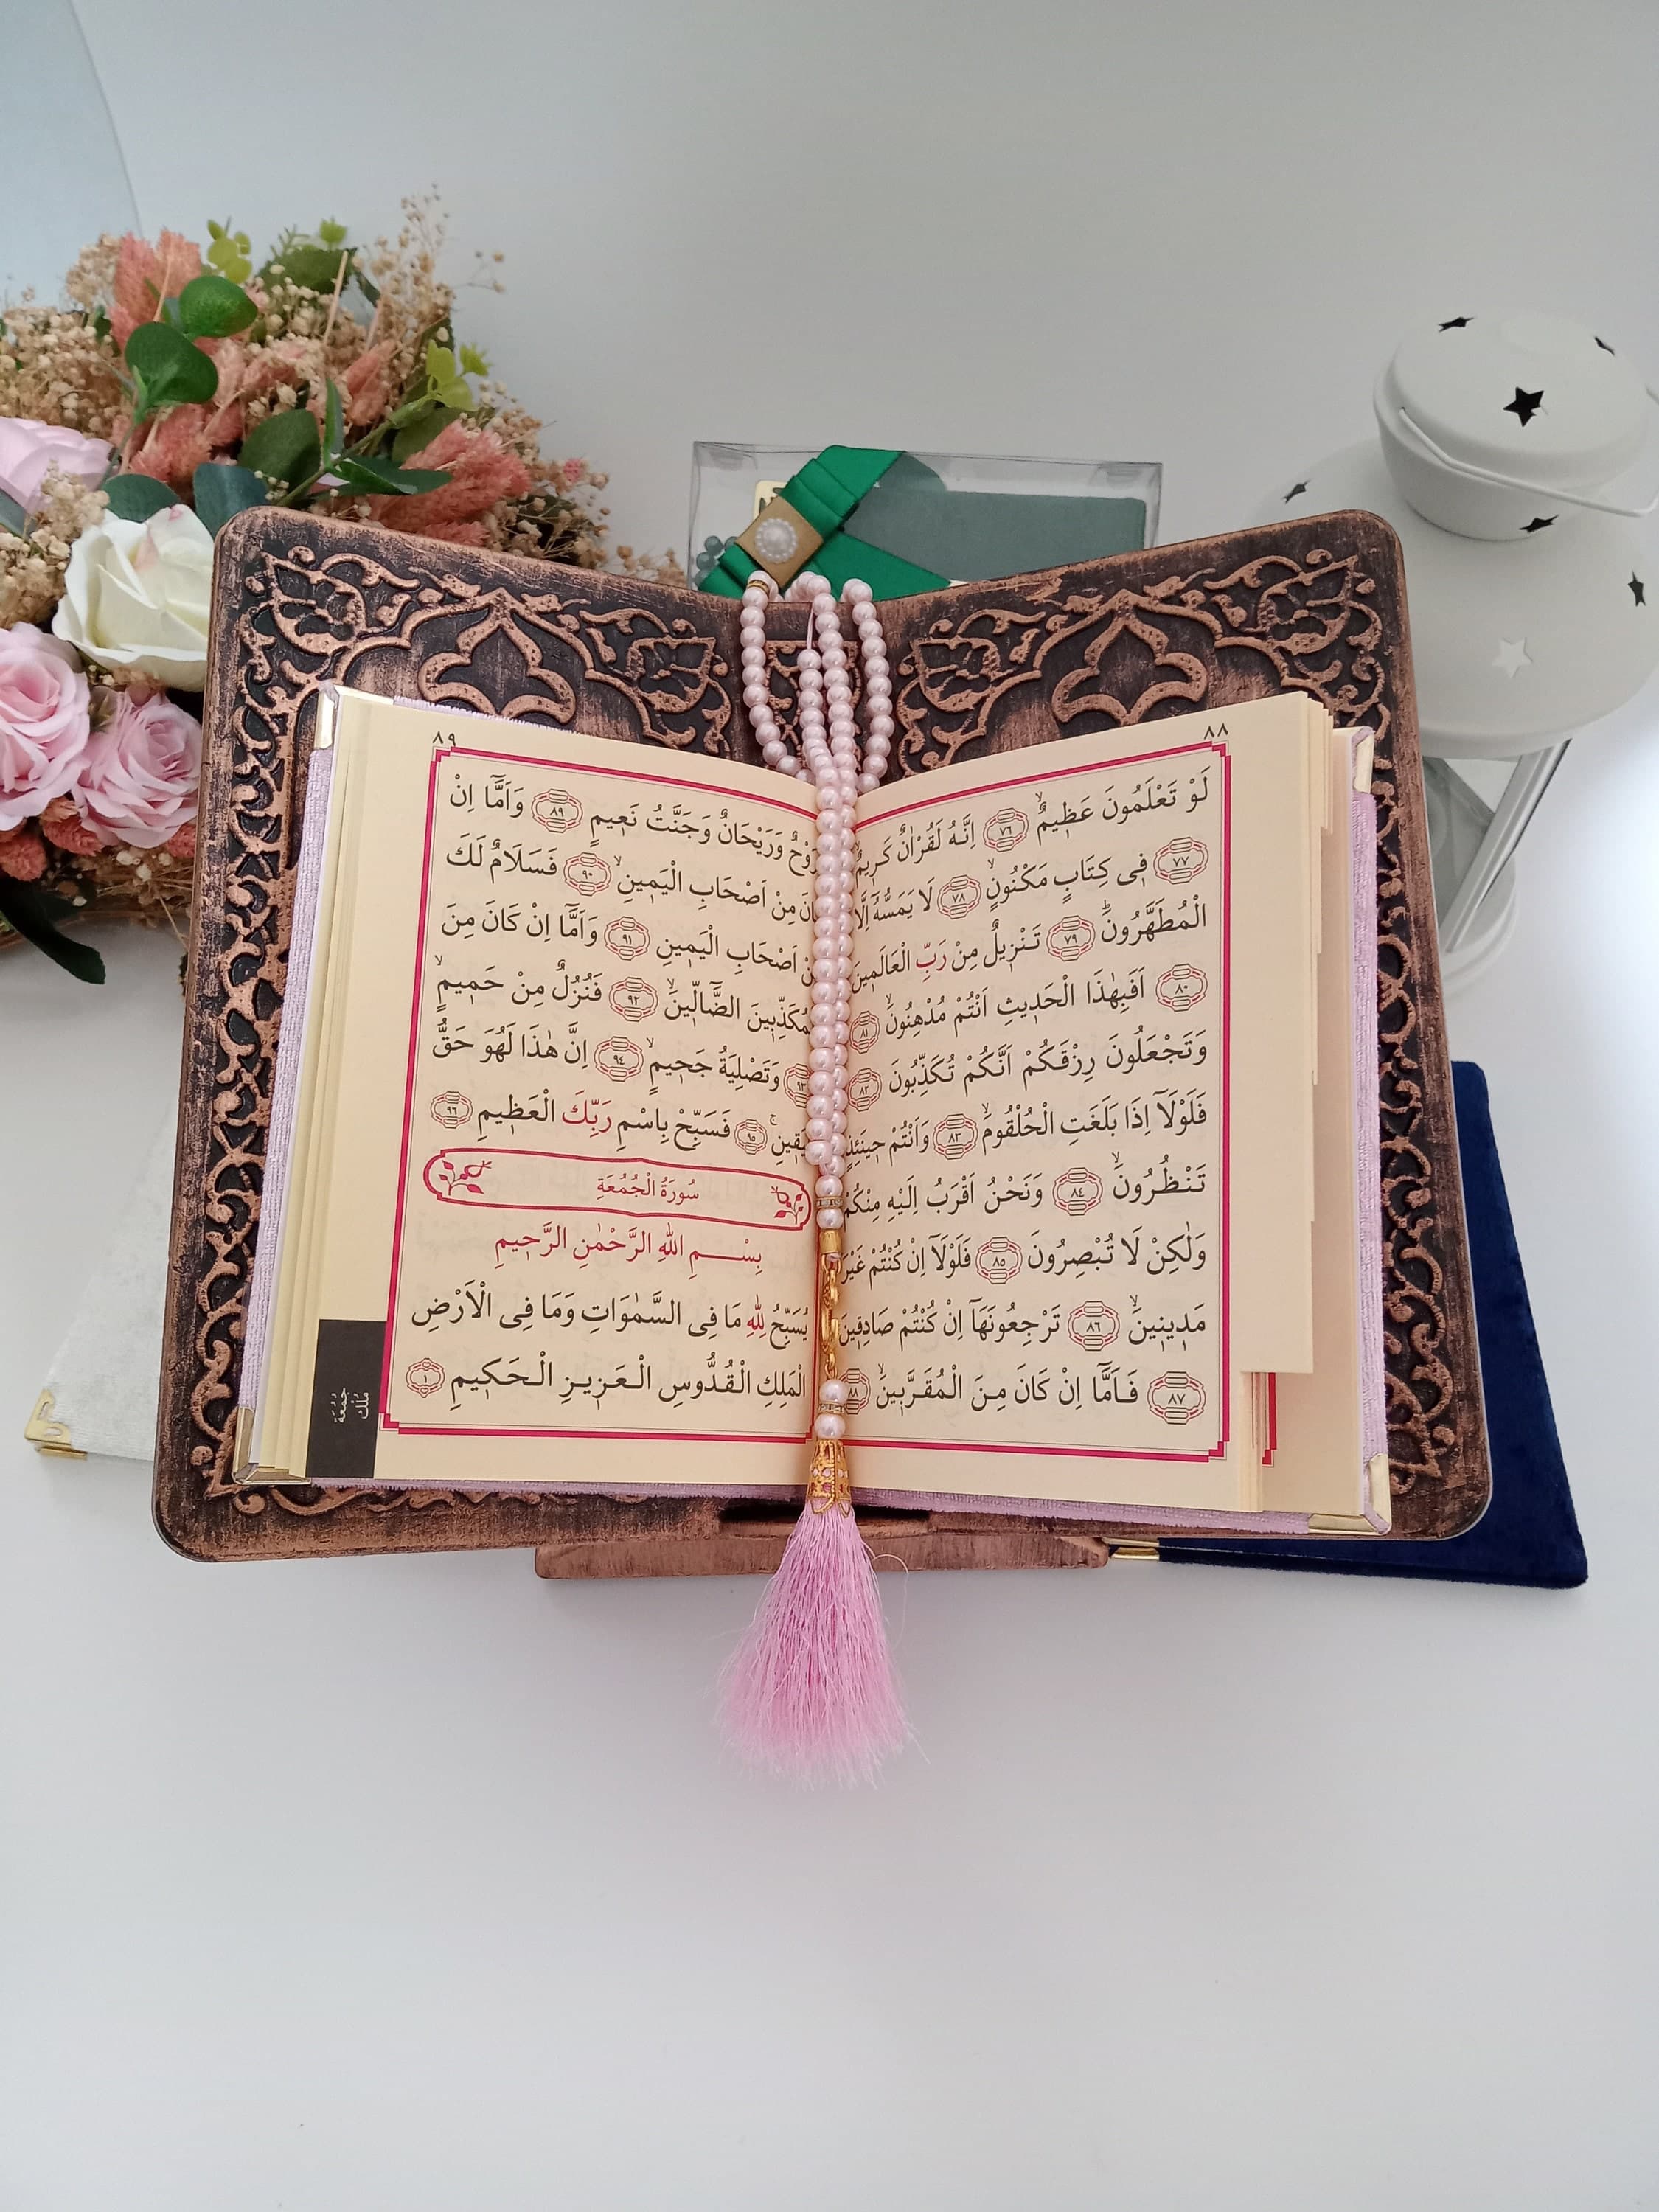 ٨٨
لَوْ تَعْلَمُونَ عَظٖيمٌۙ ﴿٧٦﴾ اِنَّهُ لَقُرْاٰنٌ كَرٖيمٌۙ
﴿٧٧﴾ فٖى كِتَابٍ مَكْنُونٍۙ ﴿٧٨﴾ لَا يَمَسُّهُٓ اِلَّا
الْمُطَهَّرُونَؕ ﴿٧٩﴾ تَنْزٖيلٌ مِنْ رَبِّ الْعَالَمٖينَ
﴿٨٠﴾ اَفَبِهٰذَا الْحَدٖيثِ اَنْتُمْ مُدْهِنُونَۙ ﴿٨١﴾
وَتَجْعَلُونَ رِزْقَكُمْ اَنَّكُمْ تُكَذِّبُونَ ﴿٨٢﴾
فَلَوْلَٓا اِذَا بَلَغَتِ الْحُلْقُومَۙ ﴿٨٣﴾ وَاَنْتُمْ حٖينَئِذٍ
تَنْظُرُونَۙ ﴿٨٤﴾ وَنَحْنُ اَقْرَبُ اِلَيْهِ مِنْكُمْ
وَلٰكِنْ لَا تُبْصِرُونَ ﴿٨٥﴾ فَلَوْلَٓا اِنْ كُنْتُمْ غَيْرَ
مَدٖينٖينَۙ ﴿٨٦﴾ تَرْجِعُونَهَٓا اِنْ كُنْتُمْ صَادِقٖينَ
﴿٨٧﴾ فَاَمَّٓا اِنْ كَانَ مِنَ الْمُقَرَّبٖينَۙ ﴿٨٨﴾
٨٩
وَرَيْحَانٌ وَجَنَّتُ نَعٖيمٍ ﴿٨٩﴾ وَاَمَّٓا اِنْ
مِنْ اَصْحَابِ الْيَمٖينِۙ ﴿٩٠﴾ فَسَلَامٌ لَكَ
اَصْحَابِ الْيَمٖينِ ﴿٩١﴾ وَاَمَّٓا اِنْ كَانَ مِنَ
الضَّٓالّٖينَۙ ﴿٩٢﴾ فَنُزُلٌ مِنْ حَمٖيمٍۙ
﴿٩٣﴾ وَتَصْلِيَةُ جَحٖيمٍۙ ﴿٩٤﴾ اِنَّ هٰذَا لَهُوَ حَقُّ
الْيَقٖينِۚ ﴿٩٥﴾ فَسَبِّحْ بِاسْمِ رَبِّكَ الْعَظٖيمِ ﴿٩٦﴾
سُورَةُ الْجُمُعَةِ
بِسْمِ اللهِ الرَّحْمٰنِ الرَّحٖيمِ
يُسَبِّحُ لِلّٰهِ مَا فِى السَّمٰوَاتِ وَمَا فِى الْاَرْضِ
الْمَلِكِ الْقُدُّوسِ الْعَزٖيزِ الْحَكٖيمِ ﴿١﴾
جُمُعَة
مُلْك